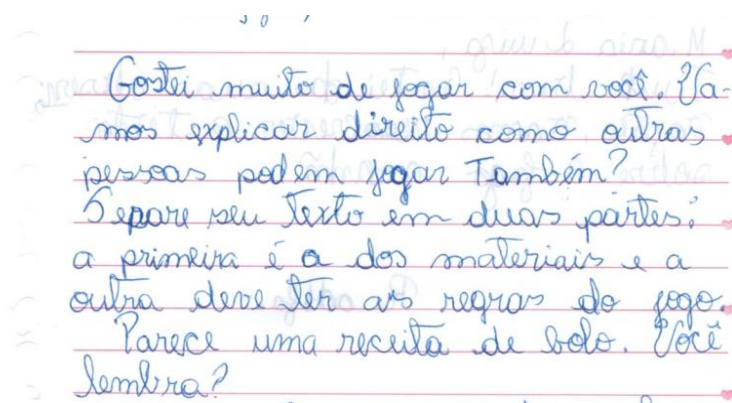 Gostei muito de jogar com você. Va-
mos explicar direito como outras
pessoas podem jogar Também?
Separe seu Texto em duas partes:
a primeira é a dos materiais e a
outra deve ter as regras do jogo.
Parece uma receita de bolo. Você
lembra?